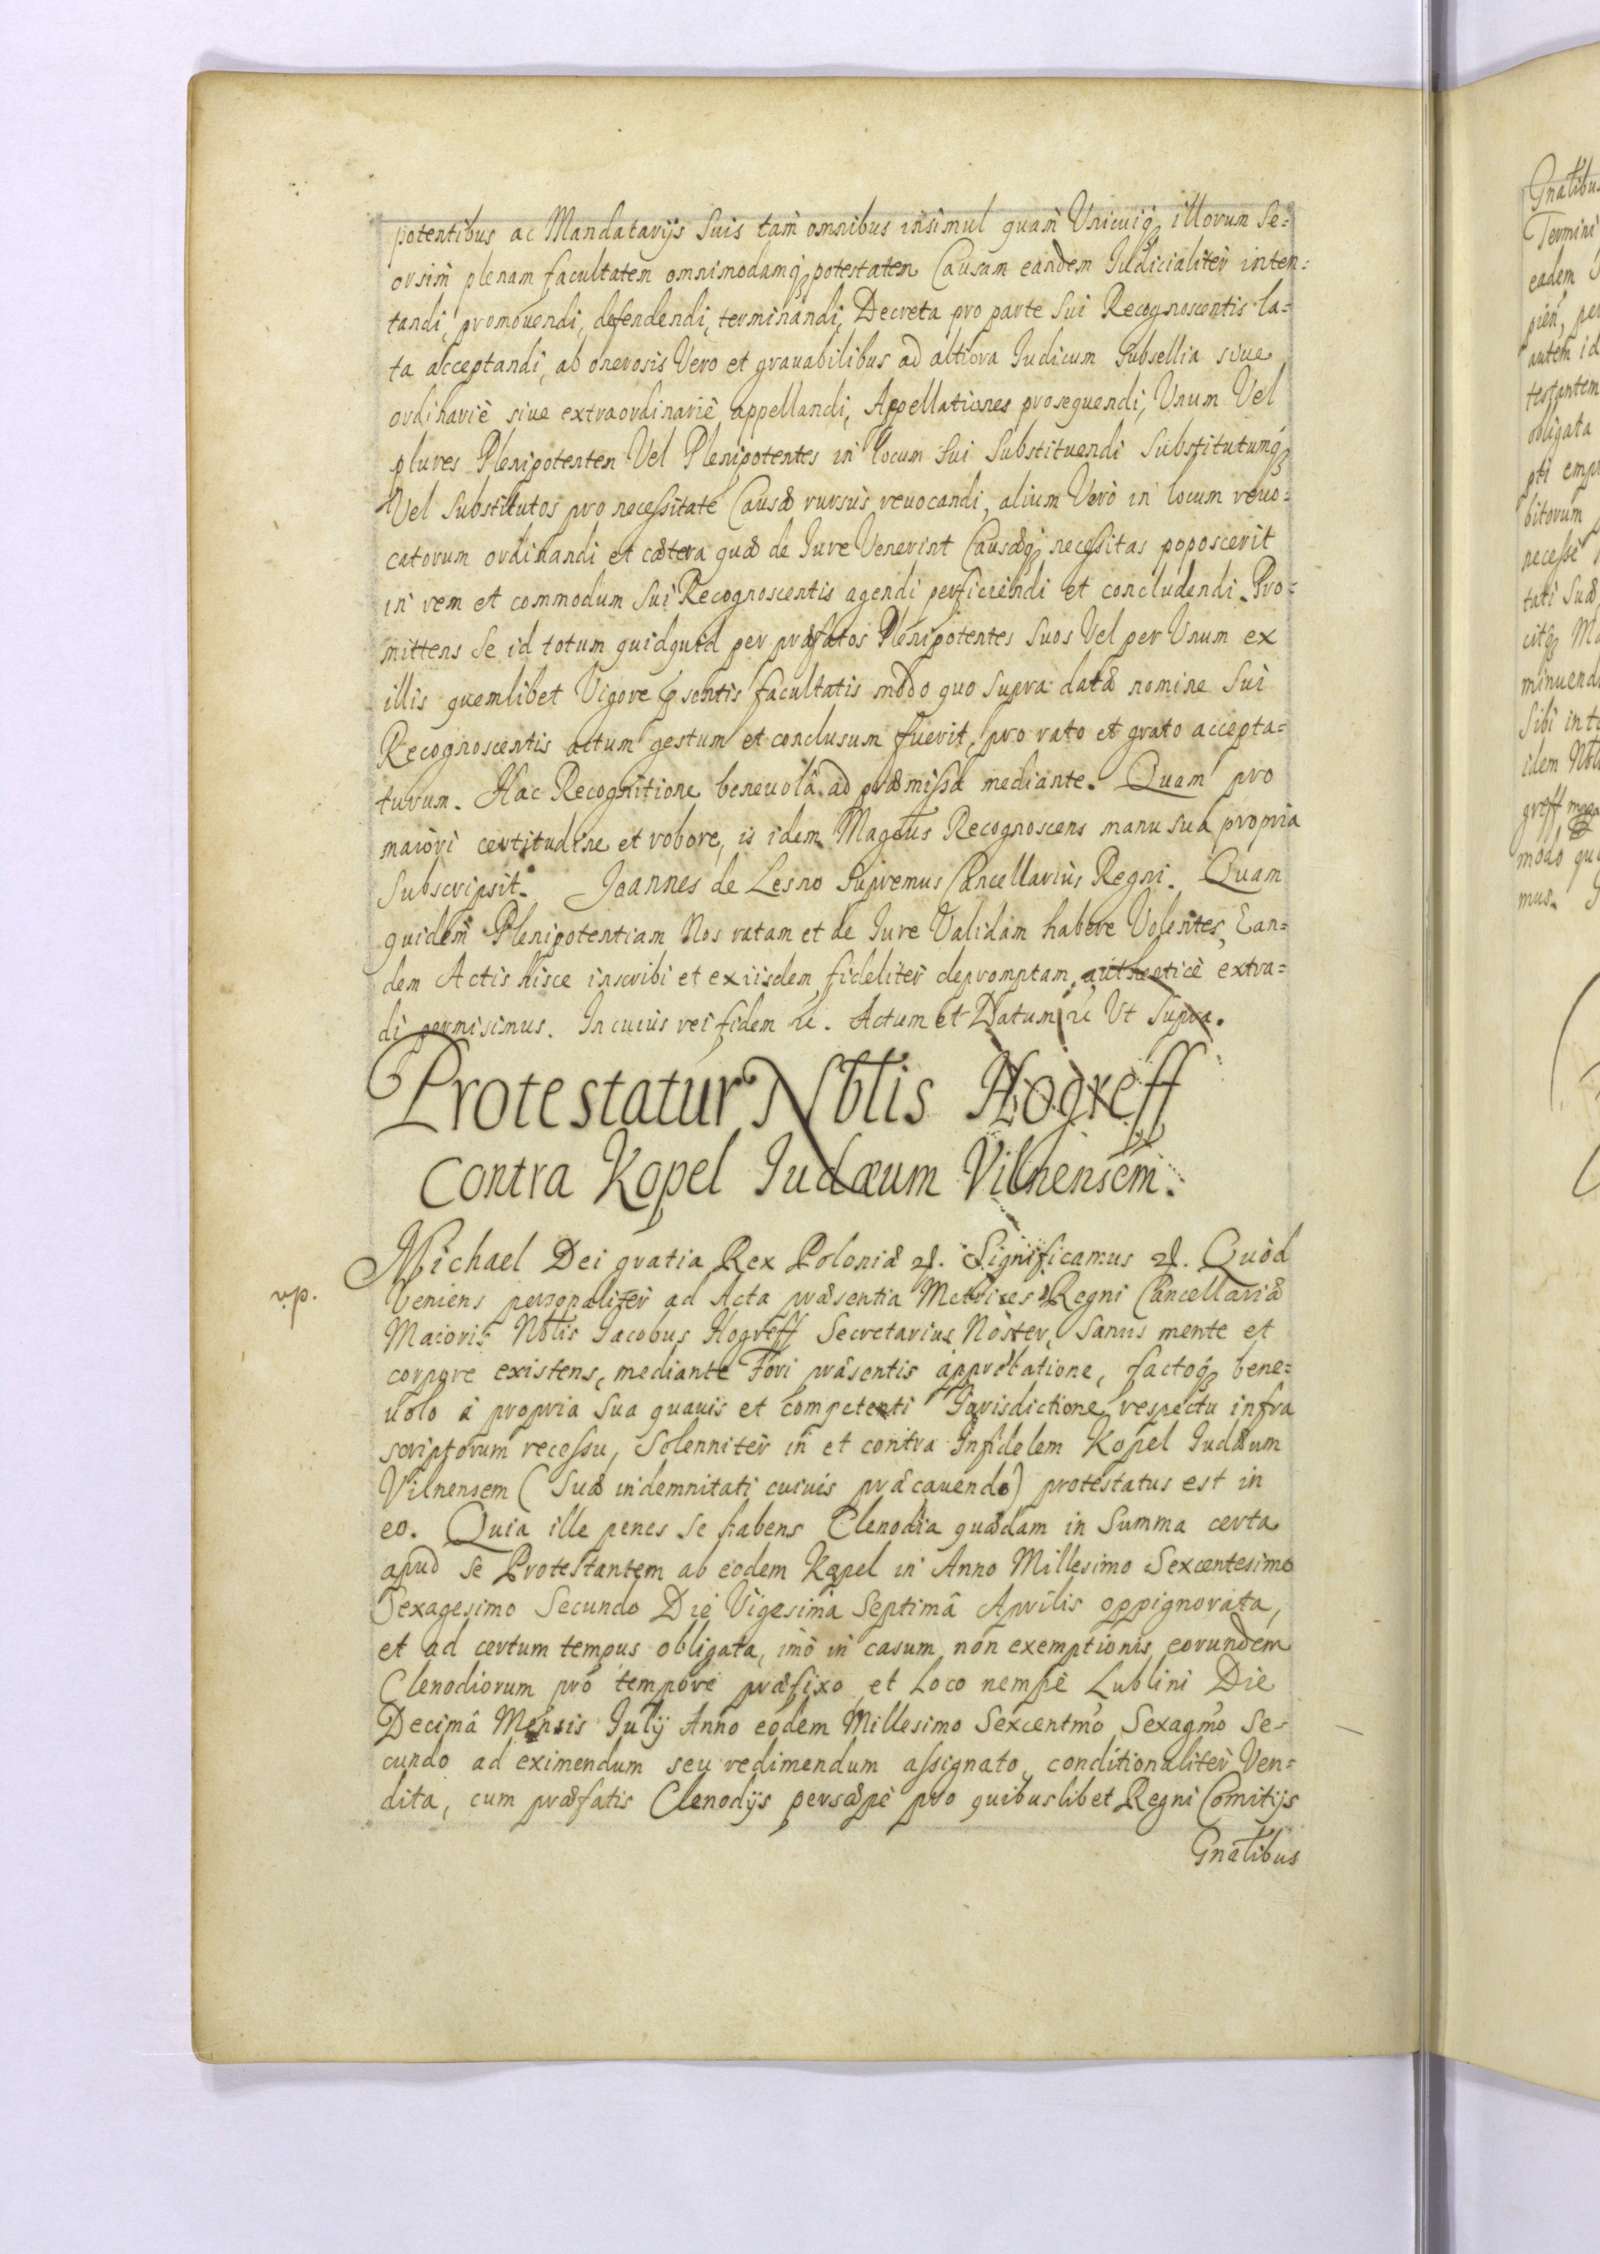 potentibus ac Mandatarijs Suis tam̃ omnibus insimul quam̃ Unicuiq; illorum Se=
orsim̃ plenam facultatem omnimodamq; potestatem Causam eandem Iudicialiter inten=
tandi, promouendi, defendendi, terminandi, Decreta pro parte Sui Recognoscentis la=
ta acceptandi, ab onerosis Vero et grauabilibus ad altiora Iudicum Subsellia siue
ordinariè siue extraordinariè appellandi, Appellationes prosequendi, Unum Vel
plures Plenipotentem Vel Plenipotentes in locum Sui Substituendi Substitutumq;
Vel Substitutos pro necessitate Causæ rursus reuocandi, alium Verò in locum reuo=
catorum ordinandi et cætera quæ de Iure Venerint Causæq; necessitas poposcerit
in rem et commodum Sui Recognoscentis agendi perficiendi et concludendi. Pro=
mittens Se id totum quidquid per præfatos Plenipotentes Suos Vel per Unum ex
illis quemlibet Vigore pñsentis facultatis modo quo Supra datæ nomine Sui
Recognoscentis actum gestum et conclusum fuerit, pro rato et grato accepta=
turum. Hac Recognitione beneuolâ ad præmissa mediante. Quam pro
maiori certitudine et robore, is idem Magcus Recognoscens manu Sua propria
Subscripsit. Joannes de Lesno Supremus Cancellarius Regni. Quam
quidem Plenipotentiam Nos ratam et de Iure Validam habere Volentes, Ean=
dem Actis hisce inscribi et ex iisdem fideliter depromptam, authenticè extra=
di permisimus. In cuius rei fidem &c. Actum et Datum &c Ut Supra.
Protestatur Nbtlis Hogreff
Contra Kopel Iudæum Vilnensem.
Michael Dei gratia Rex Poloniæ &c. Significamus &c. Quòd
r.p.
Veniens personaliter ad Acta præsentia Metrices Regni Cancellariæ
Maioris Nbtlis Iacobus Hogreff Secretarius Noster, Sanus mente et
corpore existens, mediante Fori præsentis approbatione, factoq; bene=
uolo à propria Sua quauis et competenti Iurisdictione respectu infra
scriptorum recessu, Solenniter in et contra Infidelem Kopel Iudæum
Vilnensem (Suæ indemnitati cuiuis præcauendo) protestatus est in
eo. Quia ille penes Se habens Clenodia quædam in Summa certa
apud Se Protestantem ab eodem Kopel in Anno Millesimo Sexcentesimo
Sexagesimo Secundo Die Vigesima Septimâ Aprilis oppignorata,
et ad certum tempus obligata, imò in casum non exemptionis eorundem
Clenodiorum pro tempore præfixo, et Loco nempè Lublini Die
Decimâ Mensis Iulij Anno eodem Millesimo Sexcentmo Sexagmo Se-
cundo ad eximendum seu redimendum assignato, conditionaliter Ven=
dita, cum præfatis Clenodijs persæpè pro quibuslibet Regni Comitijs
Gnãlibus